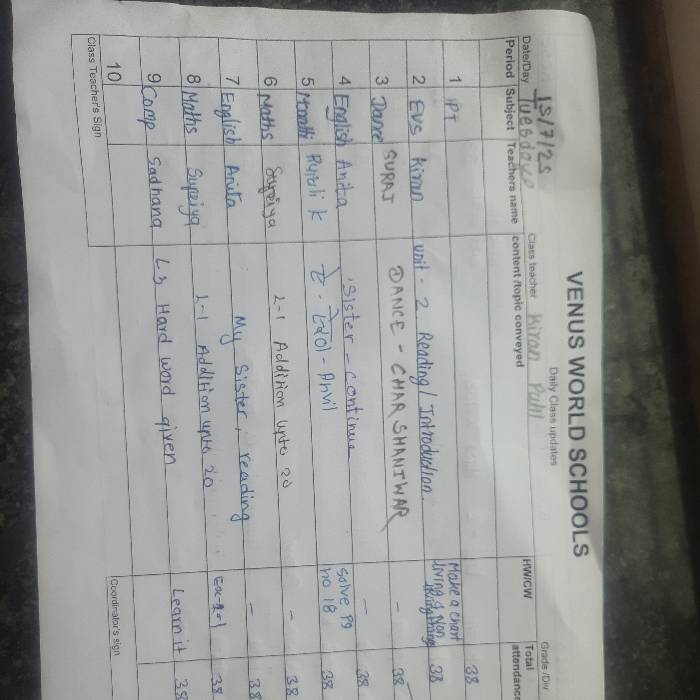 VENUS WORLD SCHOOLS
Daily Class updates
Date/Day 15/7/25 Tuesday Class teacher Kiran Patil Grade /Div
Period Subject Teachers name content /topic conveyed HW/CW Total attendance
1 PT 38
2 EVS Kiran Unit - 2 Reading / Introduction. Make a chart living & Non living things 38
3 Dance SURAJ DANCE - CHAR SHANIWAR - 38
4 English Anita Sister - continue - 38
5 Marathi solve pg no 18 38
6 Maths Supriya 2-1 Addition upto 20 - 38
7 English Anita My Sister, reading - 38
8 Maths Supriya 2-1 Addition upto 20 38
9 Comp Sadhana L3 Hard word given Learn it 38
10
Class Teacher's Sign Coordinator's sign